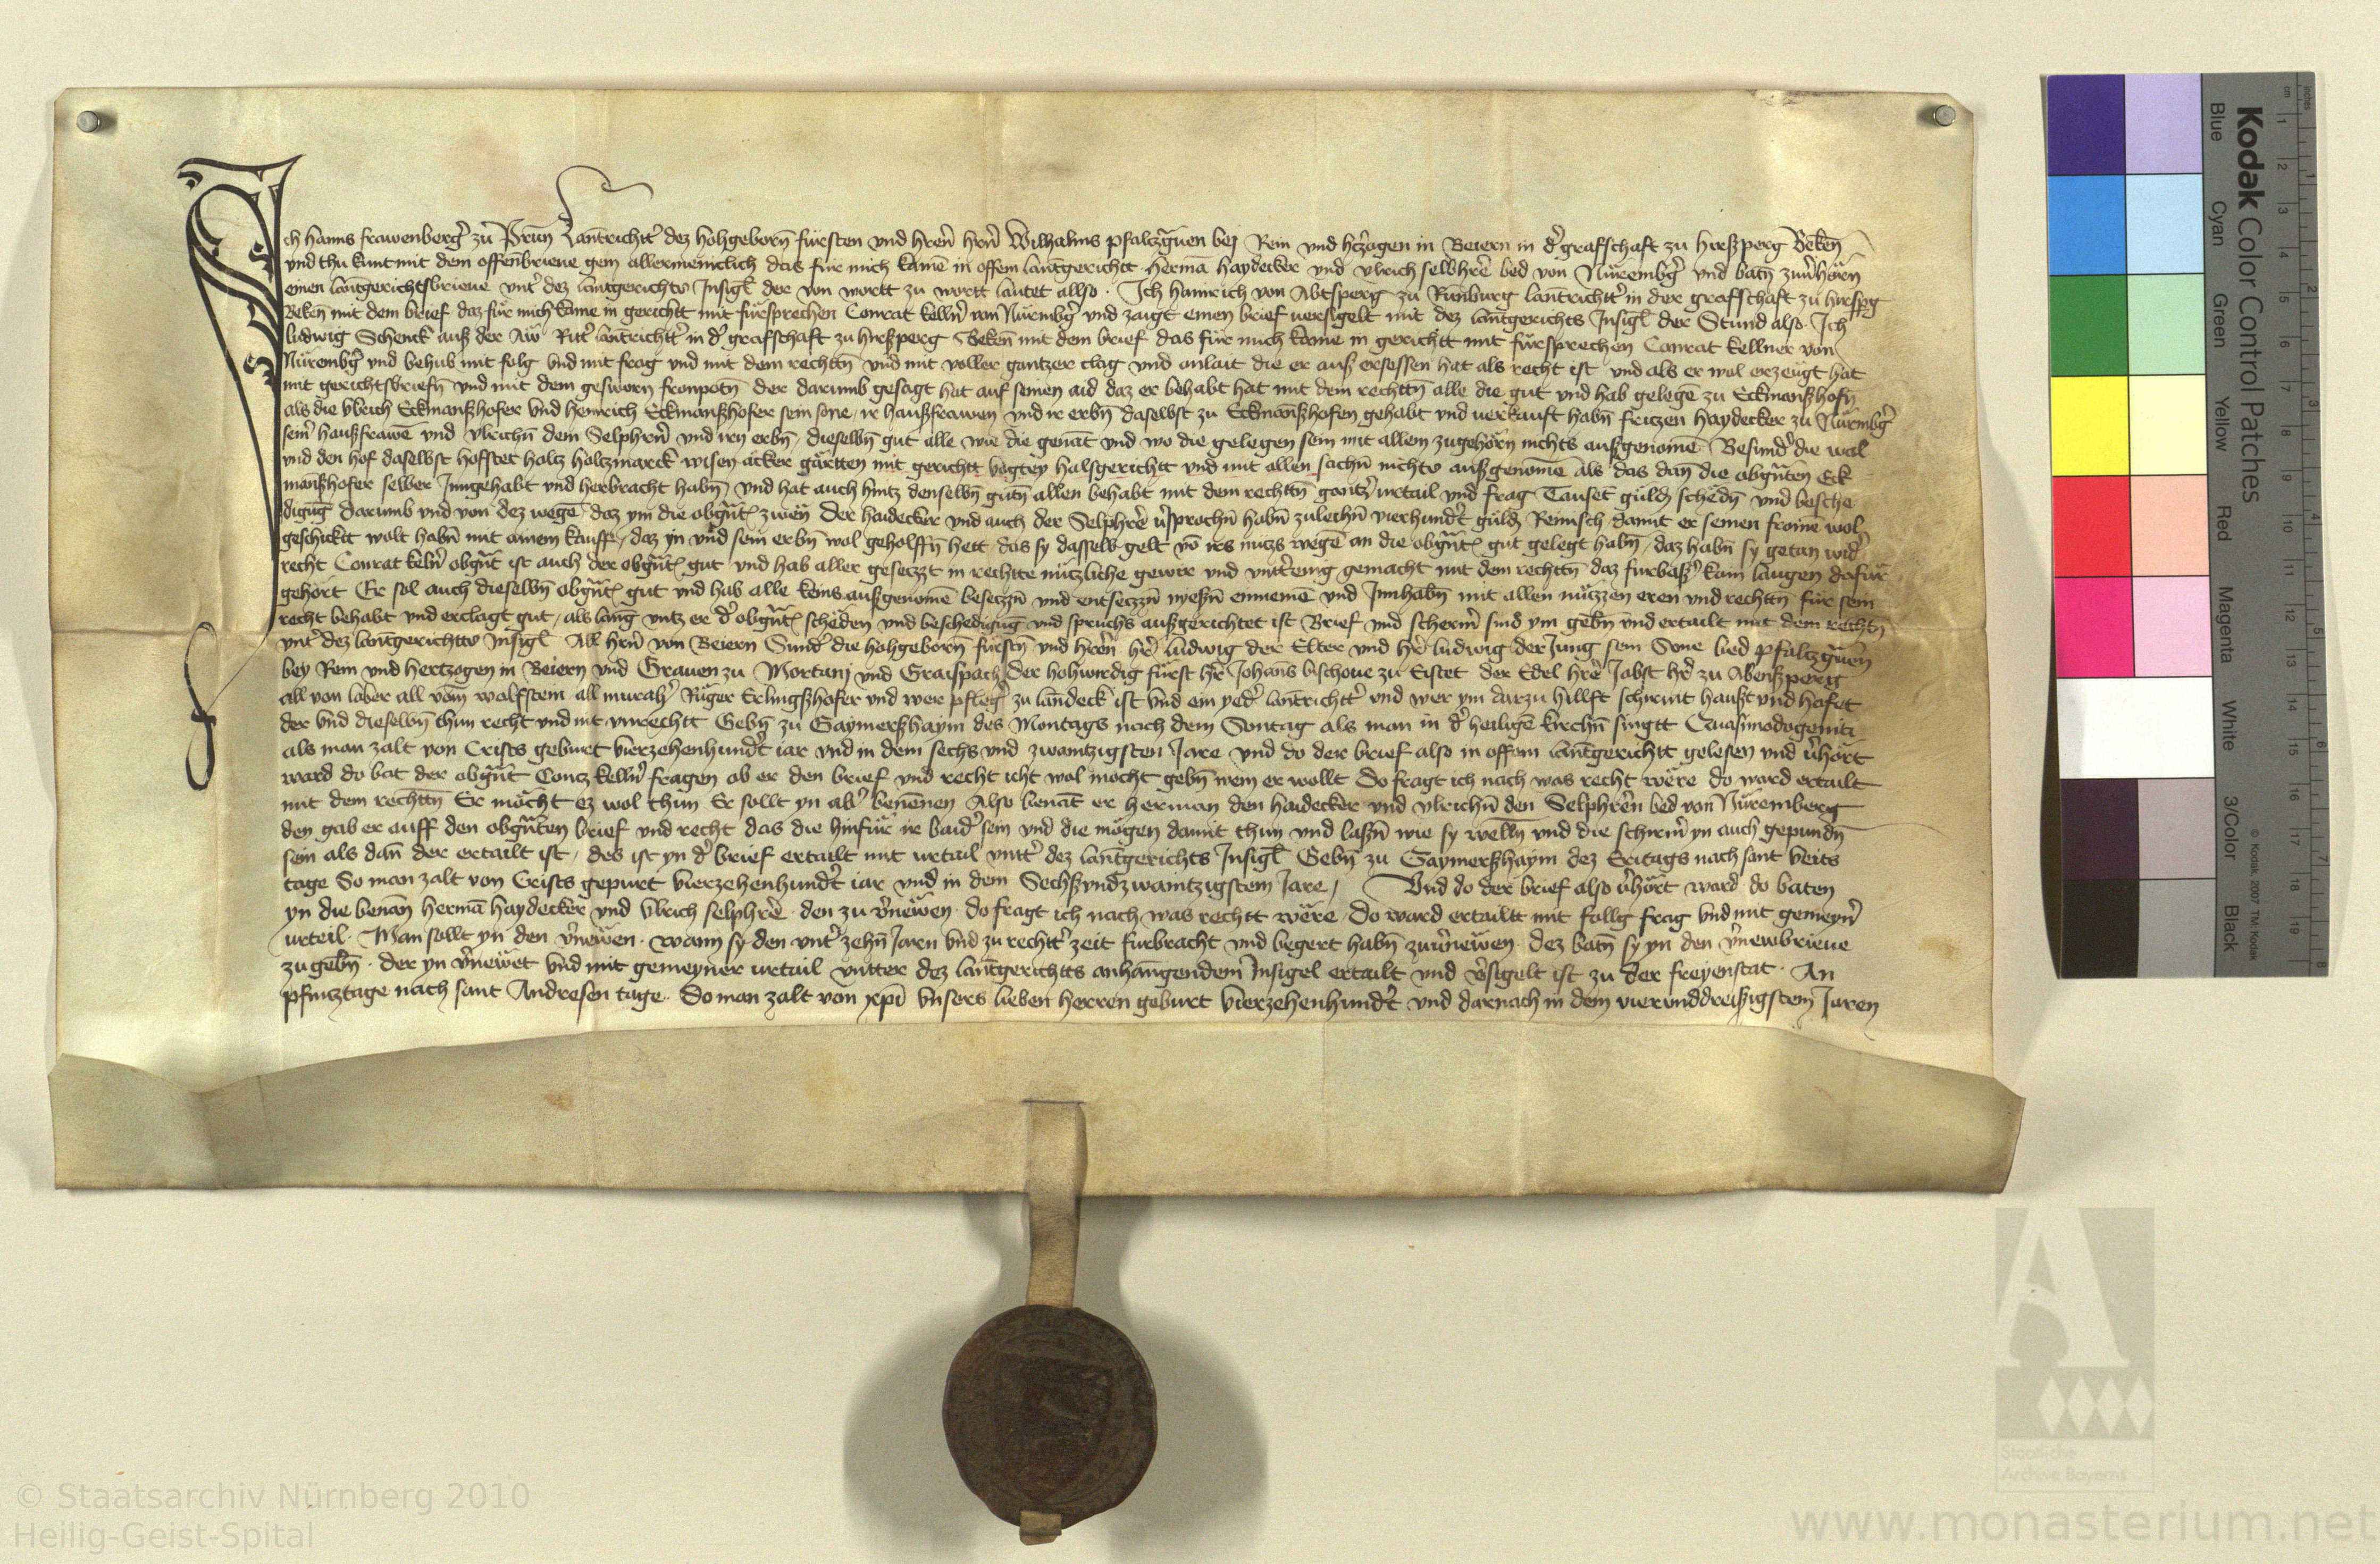 Ich hanns frawenberg͛ zu Prun Lantricht͛ dez hohgeborn̄ fürsten vnd hren̄ hrn̄ Wilhalms pfaltzgͣuen bej Rein vnd hͨzogen in Beiern in d͛ grafschaft zu hirßperg Beken̄
vnd thu kunt mit dem offenbrieue gein allermeniclich das für mich kame in offem lantgerichtt hermā haydecker vnd vlrich selbhrē bed von Nürembg͛ vnd batn̄ zuu͛hörn
einen lantgerichtsbrieue vnt͛ dez lantgerichts Insigl̄ der von wortt zu wortt lautet allso · Ich hainrich von Abtsperg zu Rünburg lantrichtt͛ in der grafschaft zu hirsp͛g
Beken̄ mit dem brief daz für mich kame in gerichtt mit fürsprechen Conrat kelln͛ von Nürmbg͛ vnd zaigt einen brief uersigelt mit dez lantgerichts Insigl̄ der Stund also · Ich
ludwig Schenck auß der Aw Ritt͛ lantrichtt͛ in d͛ grafschaft zu hirßperg Beken̄ mit dem brief das für mich kame in gerichtt mit fürsprechen Conrat kellner von
Nürembg͛ vnd behub mit folg vnd mit frag vnd mit dem rechttn̄ vnd mit voller gantzer clag vnd anlait die er auß ersessen hat als recht ist vnd als er wol erzeugt hat
mit gerichtsbriefn̄ vnd mit dem gesworn fronpotn̄ der darumb gesagt hat auf seinen aid daz er behabt hat mit dem rechttn̄ alle die gut vnd hab gelegē zu Eckmanßhofn̄
als die vlrich Eckmanßhofer vnd heinrich Eckmanßhofer sein sone / ir haußfrawen vnd ir erbn̄ daselbst zu Eckmanßhofen gehabt vnd uerkauft habn̄ fritzen haydecker zu Nürmbg͛
sein͛ haußfrawē vnd vlrichn̄ dem Selphrn̄ vnd irn erbn̄ / dieselbn̄ gut alle wie die genāt vnd wo die gelegen sein mit allem zugehörn nichts außgenomē Besund͛ die wal
vnd den hof daselbst hofstet holtz holtzmarck wisen äcker gärtten mit gerichtt vogtey halsgerichtt vnd mit allen sachn̄ nichts außgenomē als das dan die obgn̄ten Eck
manßhofer selber Inngehabt vnd herbracht habn̄ / vnd hat auch hintz denselbn̄ gutn̄ allen behabt mit dem rechttn̄ gantz͛ urtail vnd frag Tauset guld̄ schedn̄ vnd besche
digūg darumb vnd von dez wege daz ym die obgn̄t͛ zwen der haidecker vnd auch der Selphrē u͛sprochn̄ habn̄ zulechn̄ vierhund͛t guld̄ Reinisch damit er seinen fromē wol
geschicktt wolt habn̄ mit ainem kauff / daz yn vnd sein erbn̄ wol geholffn̄ hett das sy dasselb gelt vō irs nutzs wegē an die obgn̄t͛ gut gelegt habn̄ / daz habn̄ sy getan wid͛
recht Conrat keln͛ obgn̄t ist auch der obgn̄t͛ gut vnd hab aller gesetzzt in rechtte nützliche gewer vnd vntt͛enig gemacht mit dem rechttn̄ daz furbaß͛ kain laugen dafür
gehört Er sol auch dieselbn̄ obgn̄t͛ gut vnd hab alle keins außgenomē besetzzn̄ vnd entsetzzn̄ nyeßn̄ einnemē vnd Innhabn̄ mit allen nützzen eren vnd rechttn̄ für sein
recht behabt vnd erclagt gut / als lang vntz er d͛ obgn̄t͛ scheden vnd beschedigūg vnd spruchs außgerichtet ist Brief vnd scherm͛ sind ym gebn̄ vnd ertailt mit dem rechtn̄
vnt͛ dez lantgerichtts Insigl̄ All hrn̄ von Beiern Sund͛ die hohgeborn̄ fürstn̄ vnd hren̄ hr̄ ludwig der Elter vnd hr̄ ludwig der Jung sein Sone bed pfaltzgͣuen
bey Rein vnd hertzogen in Beiern vnd Grauen zu Mortanj vnd Graispach der hohwirdig fürst hr̄ Johans bischoue zu Eistet der Edel hrē Jabst hr̄ zu Abenßperg
all von laber all vom wolfstein all murah͛ Rüger Erlingßhofer vnd wer pfleg͛ zu landeck ist vnd ein yed͛ lantrichtt͛ vnd wer ym darzu hilfft schirmt haußt vnd hofet
der vnd dieselbn̄ thun recht vnd nit vnrechtt Gebn̄ zu Gaymerßhaym des Montags nach dem Sontag als man in d͛ heiligē kirchn̄ singtt Quasimodogeniti
als man zalt von Crists geburt vierzehenhund͛t iar vnd in dem sechs vnd zwaintzigsten Jare vnd do der brief also in offem lantgerichtt gelesen vnd u͛hört
ward do bat der obgn̄t Contz kelln͛ fragen ob er den brief vnd recht icht wol mocht gebn̄ wem er wollt Do fragt ich nach was recht were do ward ertailt
mit dem rechttn̄ Er möcht ez wol thun Er sollt yn ab͛ benēnen Also benāt er herman den haidecker vnd vlrichn̄ den Selphrēn bed von Nüremberg
den gab er auff den obgn̄ten brief vnd recht das die hinfür ir baid͛ sein vnd die mögen damit thun vnd laßn̄ wie sy welln̄ vnd die schirm͛ yn auch gepundn̄
sein als dan̄ der ertailt ist / des ist yn d͛ brief ertailt mit urtail vntt͛ dez lantgerichts Insigl̄ Gebn̄ zu Gaymerßhaym dez Eritags nach sant veits
tage So man zalt von Crists gepurt vierzehenhund͛t iar vnd in dem Sechßvndzwaintzigstem Jare / Vnd do der brief also u͛hört ward do baten
yn die benan̄ hermā haydecker vnd vlrich selphrē · den zu v͛newen · do fragt ich nach was rechtt were / do ward ertailtt mit follg frag vnd mit gemeyn͛
urteil · Man sollt yn den v͛newen · wann sy den vnt͛ zehn̄ Jarn vnd zu rechtt͛ zeit fürbracht vnd begert habn̄ zuu͛newen · dez batn̄ sy yn den v͛newbrieue
zugebn̄ · der yn v͛newet vnd mit gemeyner urtail vntter dez lantgerichtts anhangendem Insigel ertailt vnd v͛sigelt ist zu der freyenstat · An
pfintztage nach sant Andresen tage · Do man zalt von xp̄i vnsers lieben herren geburt vierzehenhund͛t vnd darnach in dem vierunddreißigstem Jaren
Kodak Color Control Patches
Blue Cyan Green Yellow Red Magenta White 3/Color Black
© Kodak, 2007 TM: Kodak
© Staatsarchiv Nürnberg 2010
Heilig-Geist-Spital
Staatliche
Archive Bayerns
www.monasterium.net